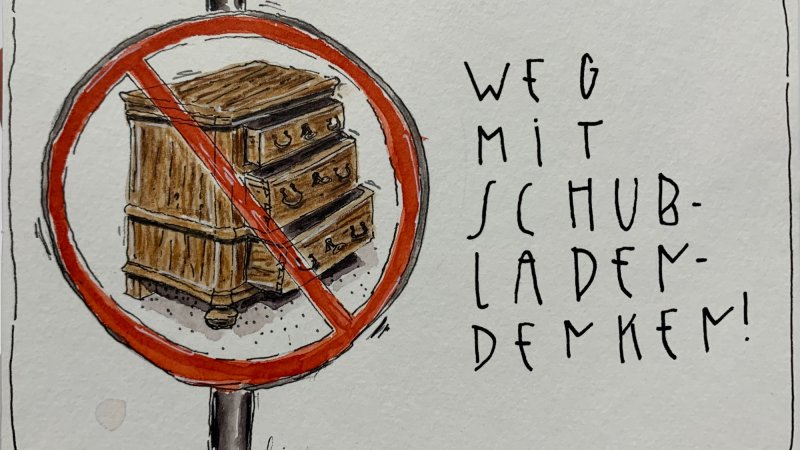 WEG
MIT
SCHUB-
LADEN-
DENKEN!